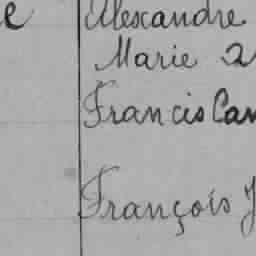 e Alexandre
Marie
Francis
François